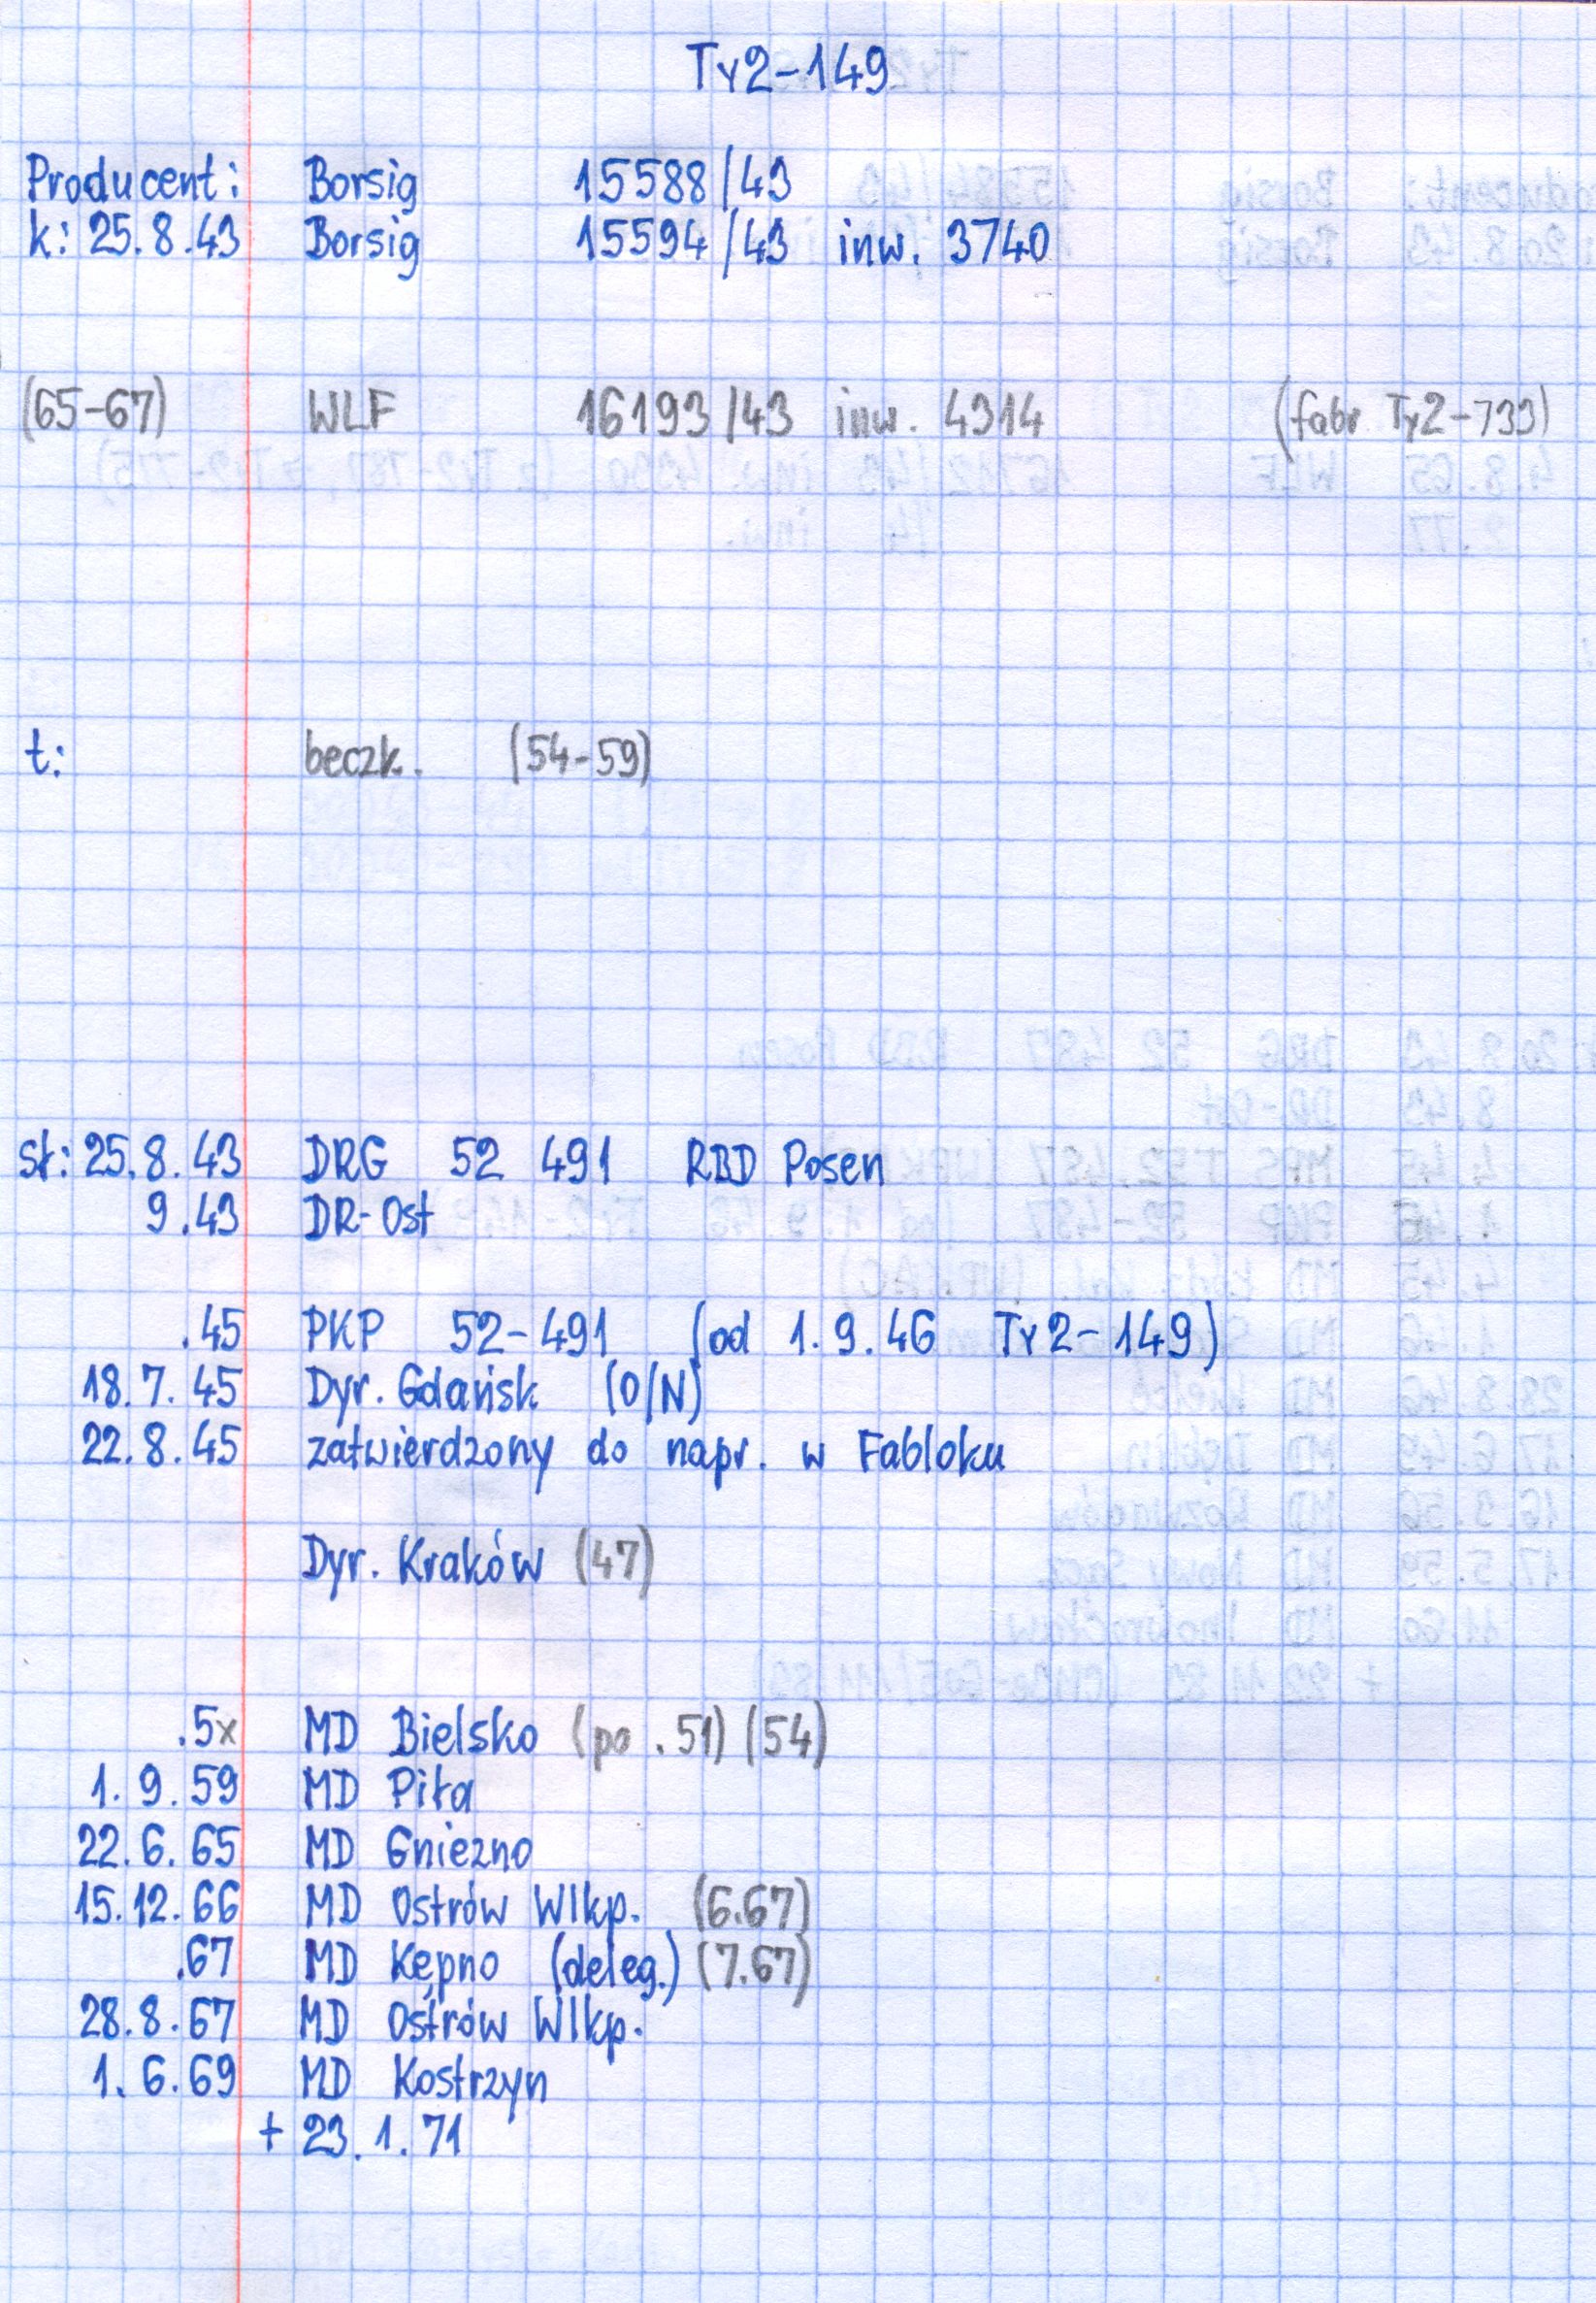 Ty2-149
Producent: Borsig 15588/43
k: 25.8.43 Borsig 15594/43 inw. 3740
(65-67) WLF 16193/43 inw. 4314 (fabr Ty2-733)
t: beczk. (54-59)
st: 25.8.43 DRG 52 491 RBD Posen
9.43 DR-Ost
.45 PKP 52-491 (od 1.9.46 Ty2-149)
18.7.45 Dyr. Gdańsk (O/N)
22.8.45 zatwierdzony do napr. w Fabloku
Dyr. Kraków (47)
.5x MD Bielsko (po .51) (54)
1.9.59 MD Piła
22.6.65 MD Gniezno
15.12.66 MD Ostrów Wlkp. (6.67)
.67 MD Kępno (deleg.) (7.67)
28.8.67 MD Ostrów Wlkp.
1.6.69 MD Kostrzyn
+ 23.1.71